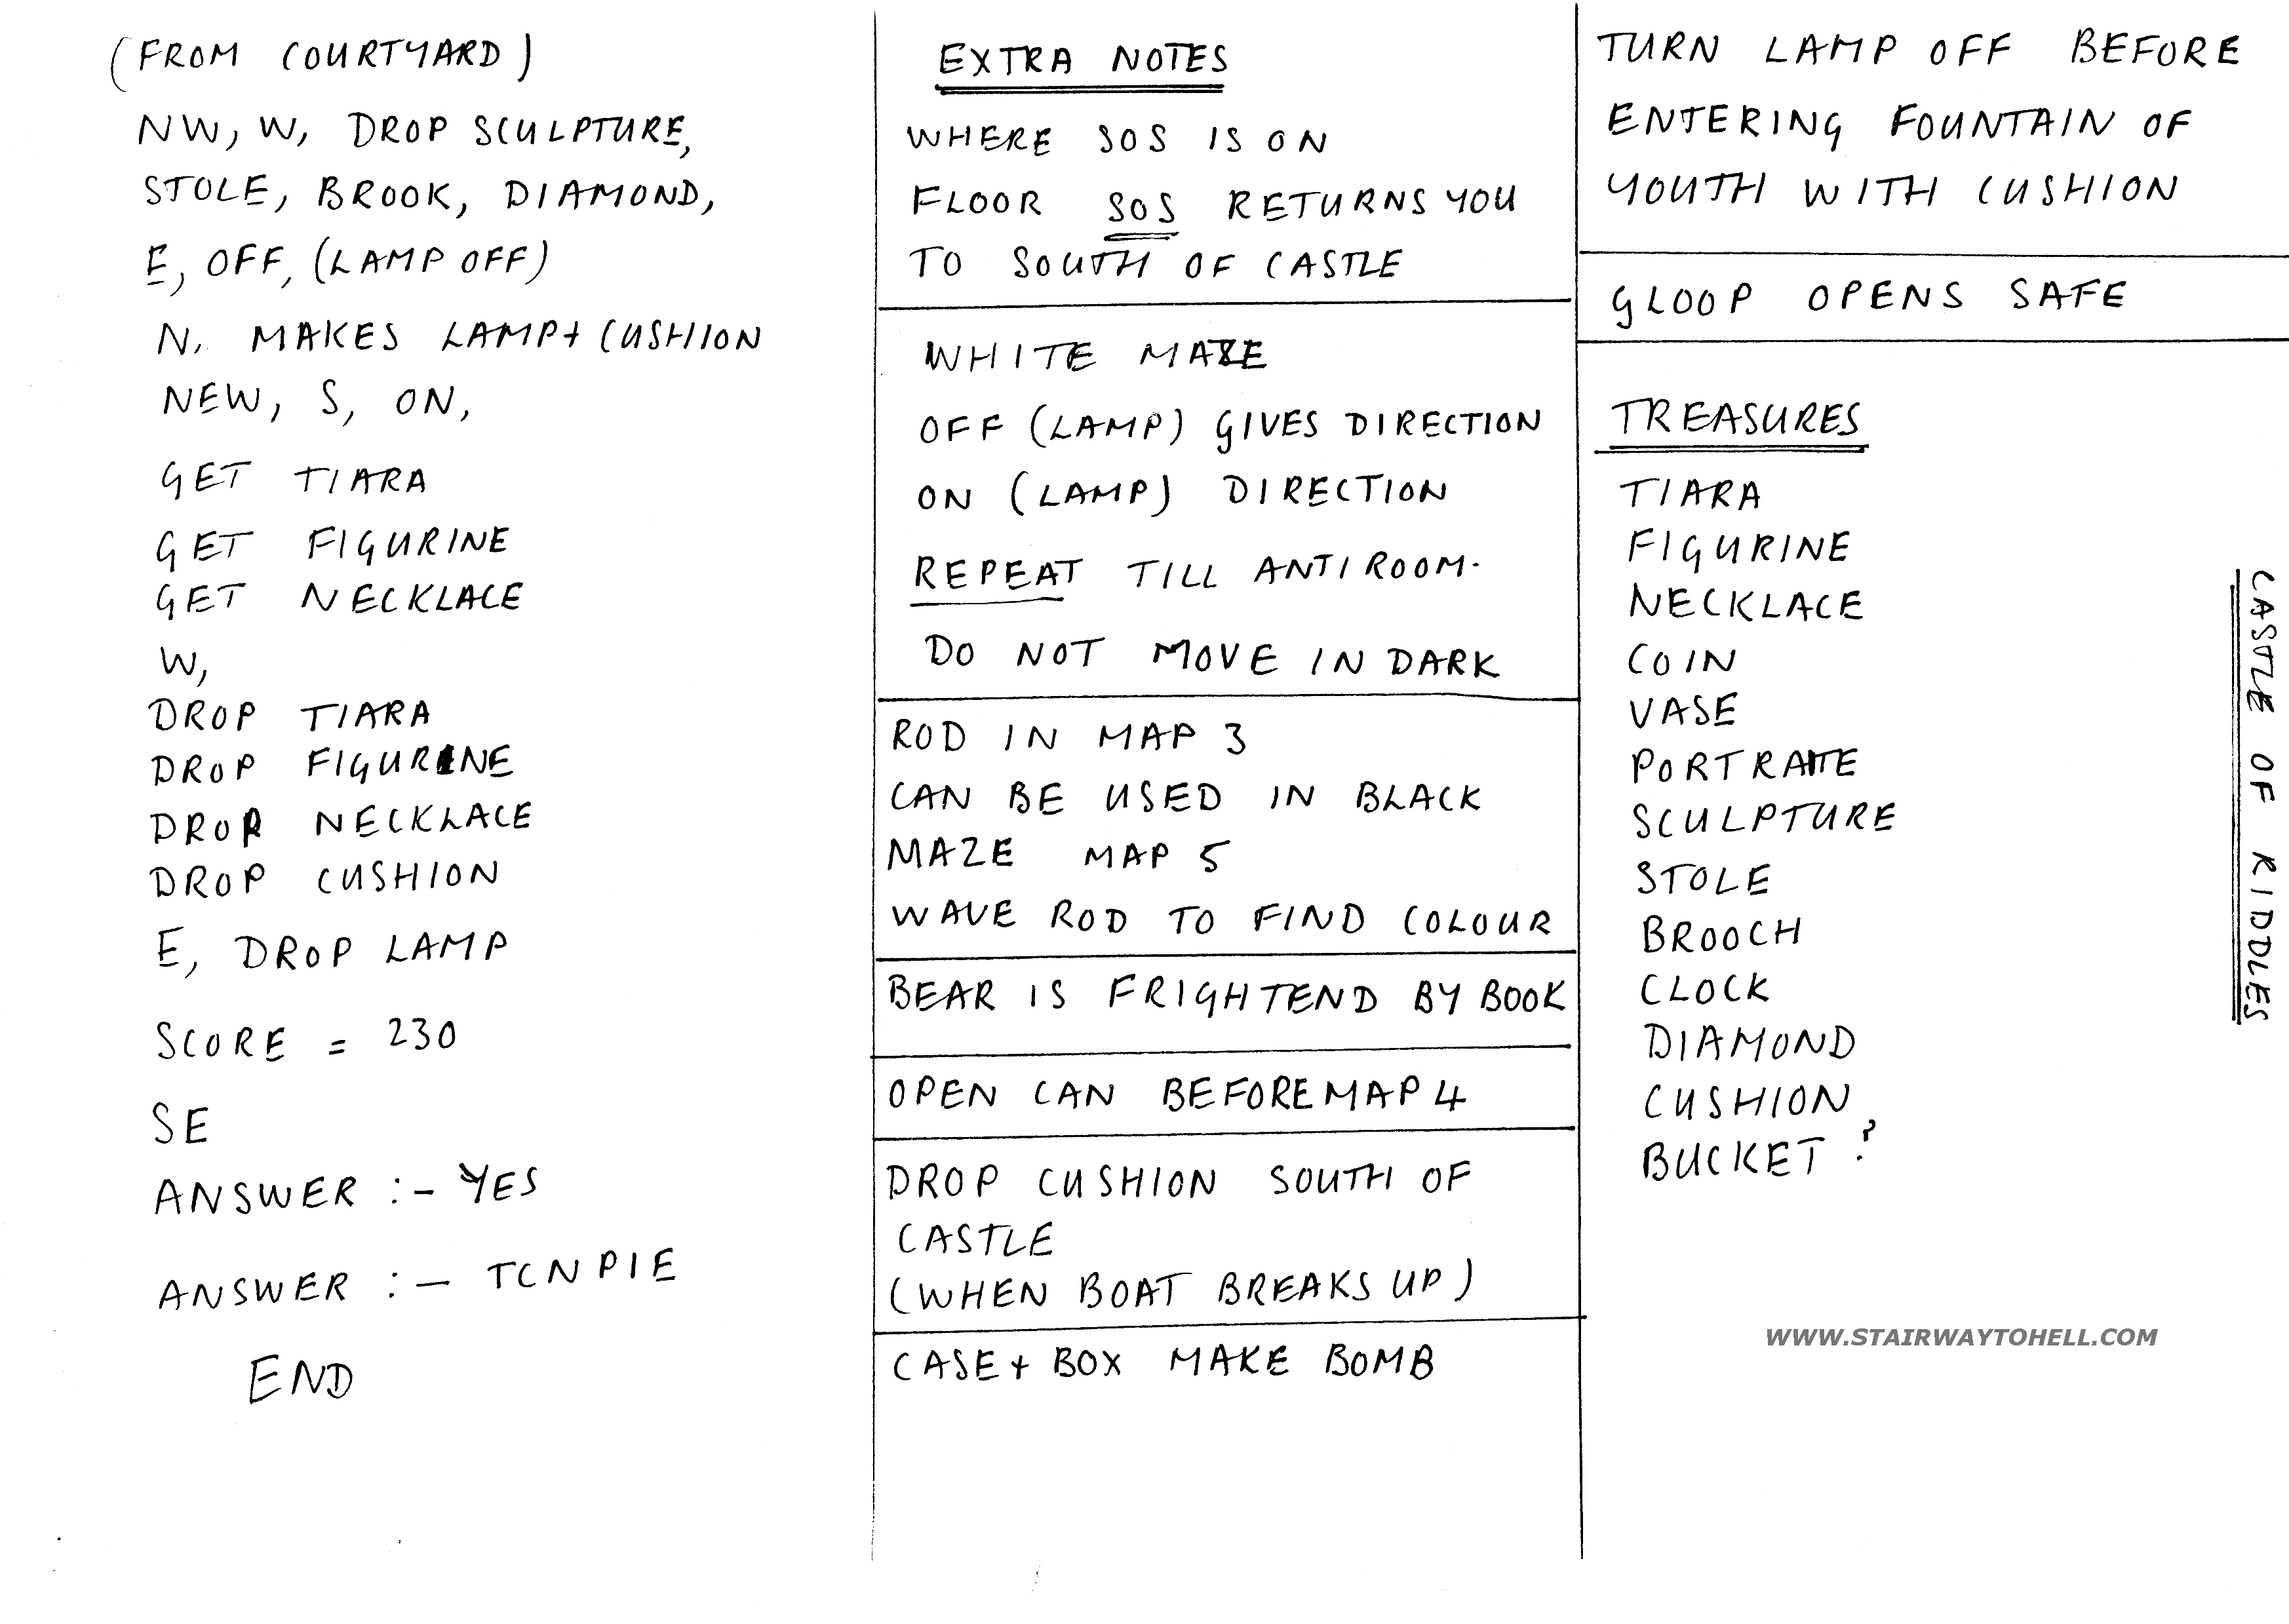 (FROM COURTYARD)
NW, W, DROP SCULPTURE,
STOLE, BROOK, DIAMOND,
E, OFF, (LAMP OFF)
N, MAKES LAMP + CUSHION
NEW, S, ON,
GET TIARA
GET FIGURINE
GET NECKLACE
W,
DROP TIARA
DROP FIGURINE
DROP NECKLACE
DROP CUSHION
E, DROP LAMP
SCORE = 230
SE
ANSWER :- YES
ANSWER :- TCNPIE
END
EXTRA NOTES
WHERE SOS IS ON
FLOOR SOS RETURNS YOU
TO SOUTH OF CASTLE
WHITE MAZE
OFF (LAMP) GIVES DIRECTION
ON (LAMP) DIRECTION
REPEAT TILL ANTIROOM.
DO NOT MOVE IN DARK
ROD IN MAP 3
CAN BE USED IN BLACK
MAZE MAP 5
WAVE ROD TO FIND COLOUR
BEAR IS FRIGHTEND BY BOOK
OPEN CAN BEFORE MAP 4
DROP CUSHION SOUTH OF
CASTLE
(WHEN BOAT BREAKS UP)
CASE + BOX MAKE BOMB
TURN LAMP OFF BEFORE
ENTERING FOUNTAIN OF
YOUTH WITH CUSHION
GLOOP OPENS SAFE
TREASURES
TIARA
FIGURINE
NECKLACE
COIN
VASE
PORTRAITE
SCULPTURE
STOLE
BROOCH
CLOCK
DIAMOND
CUSHION
BUCKET ?
CASTLE OF RIDDLES
WWW.STAIRWAYTOHELL.COM